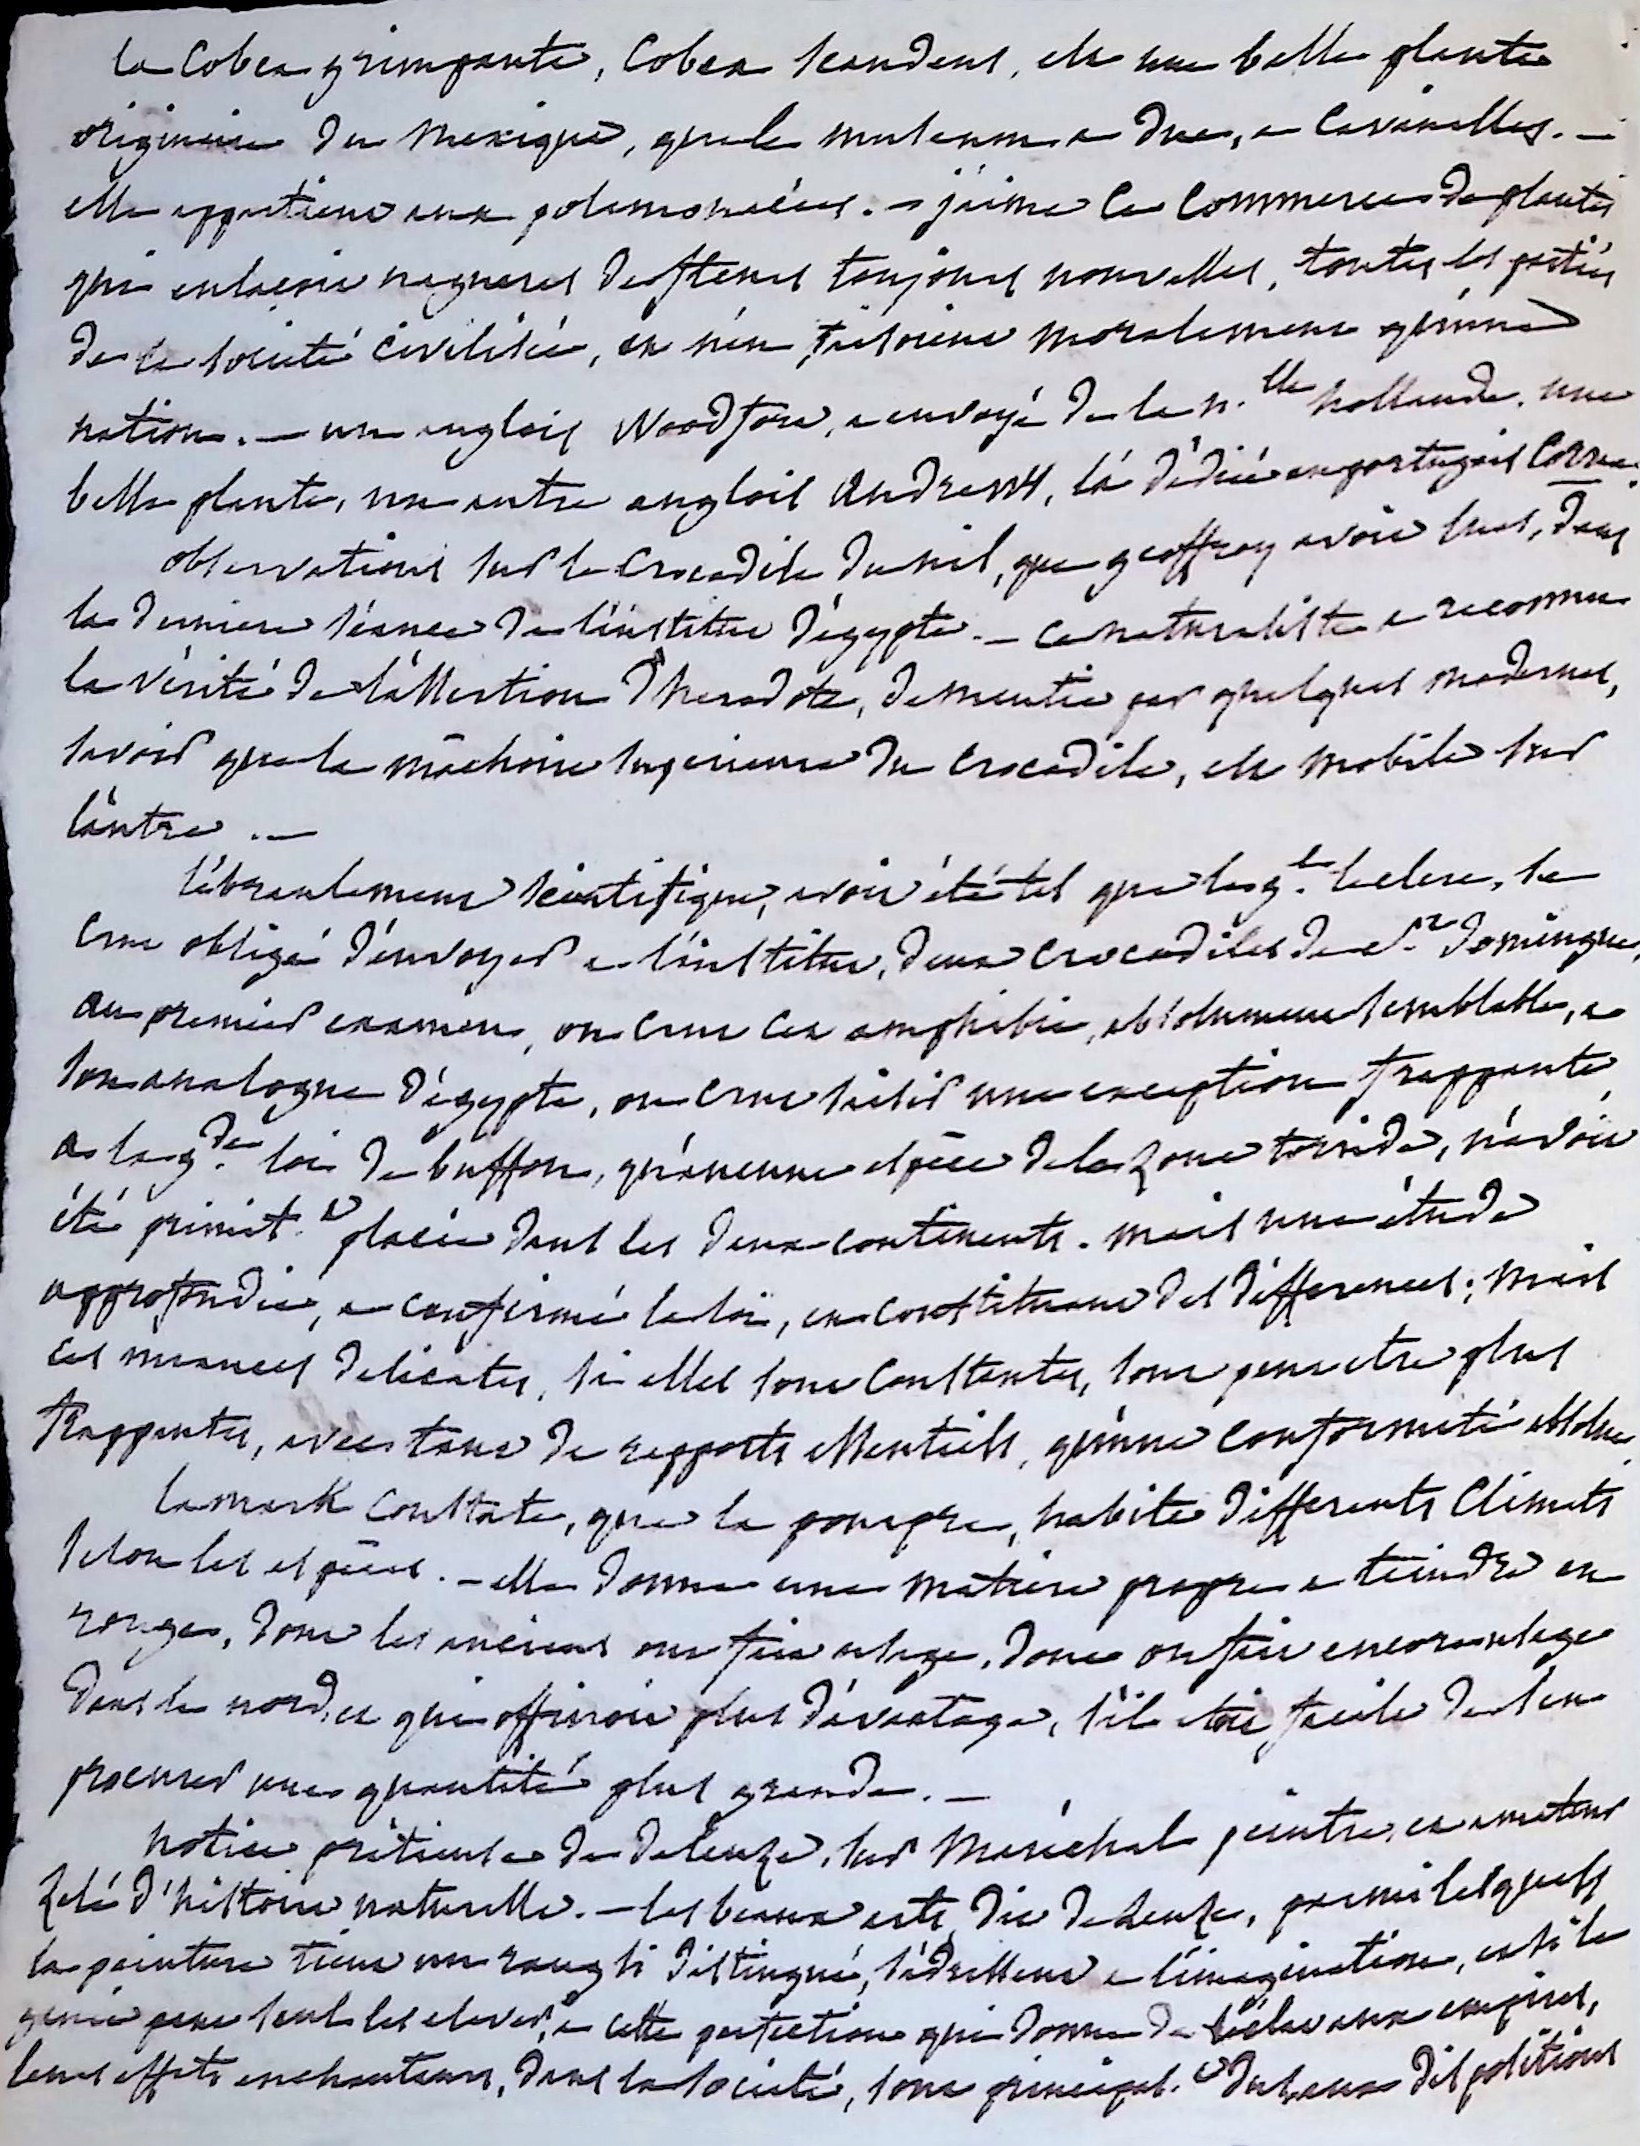 la Cobea grimpante, Cobea scandens, est une belle plante
originaire du Mexique, que le museum a due, a Cavanilles. —
elle appartient aux polemonacées. — j'aime ce commerce de plantes
qui enlacoit nagueres de fleurs toujours nouvelles, toutes les parties
de la société civilisée, et n'en faisoient moralement qu'une
nation. — un anglois Woodford, a envoyé de la n.lle hollande, une
belle plante, un autre anglois Andrews, l'a dédiée au portugais Correa.
observations sur le Crocodile du nil, que geoffroy avoit lues, dans
la derniere séance de l'institut d'égypte. — ce naturaliste a reconnu
la vérité de l'assertion d'herodote, dementie par quelques modernes,
savoir que la mâchoire superieure du Crocodile, est mobile sur
l'autre. —
l'ébranlement scientifique, avoit été tel que le g.l leclerc, se
crut obligé d'envoyer a l'institut, deux crocodiles de St Domingue,
au premier examen, on crut cet amphibie, absolument semblable, a
son analogue d'égypte, on crut saisir une exception frappante,
a la g.de loi de buffon, qu'aucune espèce de la zone torride, n'avoit
été primit.t placée dans les deux continents. mais une étude
approfondie, a confirmé la loi, en constituant des differences; mais
ces nuances delicates, si elles sont constantes, sont peut etre plus
frappantes, avec tant de rapports essentiels, qu'une conformité absolue.
lamark constate, que la pourpre, habite differents climats
selon les espèces. — elle donne une matiere propre a teindre en
rouge, dont les anciens ont fait usage, dont on fait encore usage
dans le nord, et qui offriroit plus d'avantage, s'il etoit facile de s'en
procurer une quantité plus grande. —
notice précieuse de Deleuze, sur Maréchal peintre, et amateur
zelé d'histoire naturelle. — les beaux arts, dit Deleuze, parmi lesquels
la peinture tient un rang si distingué, s'adressent a l'imagination, et si le
genie peut seul les elever, a cette perfection qui donne de l'éclat aux empires,
leurs effets enchanteurs, dans la société, sont principal.t dus aux dispositions